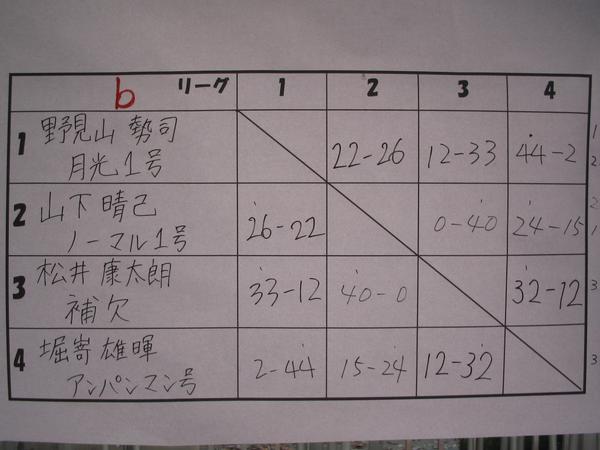 b リーグ 1 2 3 4
1 野見山 勢司
月光1号 22-26 12-33 44-2
2 山下 晴己
ノーマル1号 26-22 0-40 24-15
3 松井 康太朗
補欠 33-12 40-0 32-12
4 堀嵜 雄暉
アンパンマン号 2-44 15-24 12-32